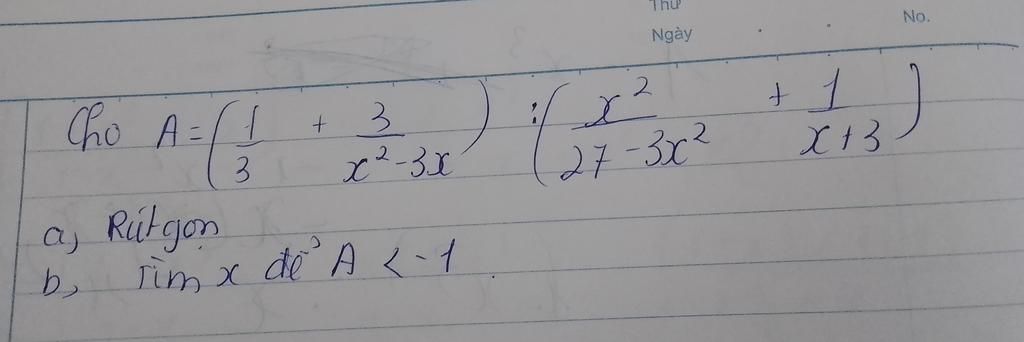 Thứ
Ngày
No.
Cho A = (1/3 + 3/(x² - 3x)) : (x²/(27 - 3x²) + 1/(x + 3))
a, Rút gọn
b, Tìm x để A < -1.